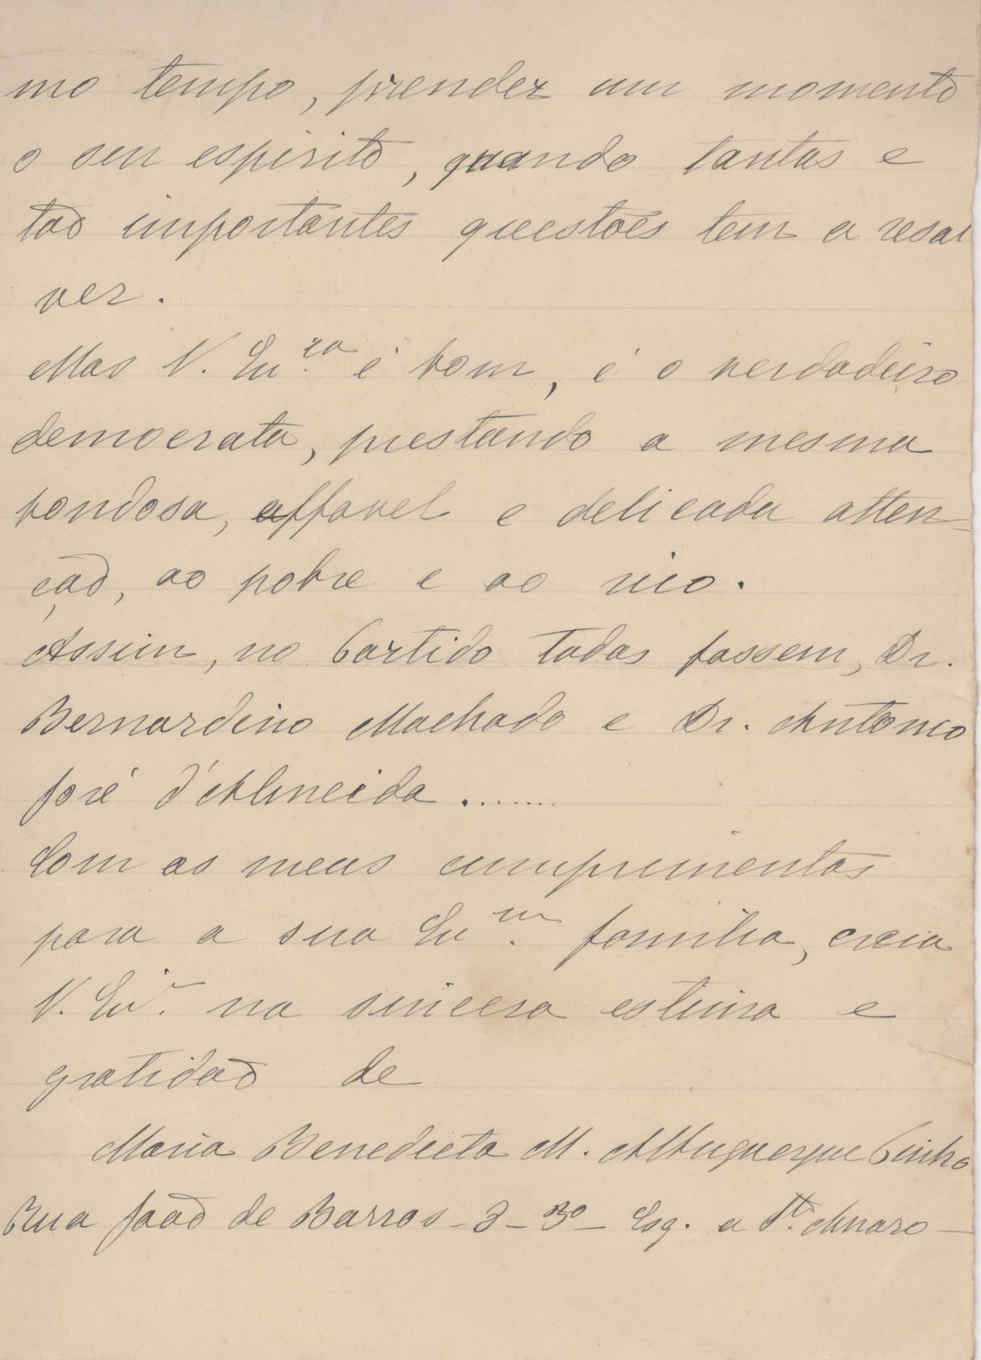 mo tempo, prender um momento
o seu espirito, quando tantas e
tão importantes questões tem a resol
ver.
Mas V. Ex.ᶜⁱᵃ é bom, é o verdadeiro
democrata, prestando a mesma
bondosa, affavel e delicada atten-
ção, ao pobre e ao rico.
Assim, no Partido todos fossem, Dr.
Bernardino Machado e Dr. Antonio
José d'Almeida .......
Com os meus cumprimentos
para a sua Ex.ᵐᵃ familia, creia
V. Ex.ᵃ na sincera estima e
gratidão de
Maria Benedicta M. Albuquerque Pinho
Rua João de Barros - 3 - 3º - Esq. a Stº. Amaro -